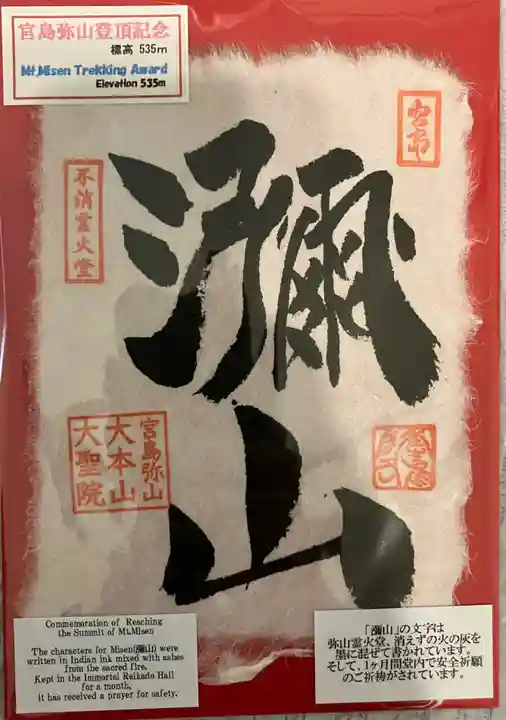 宮島弥山登頂記念
標高 535m
Mt.Misen Trekking Award
Elevation 535m
不消霊火堂
瀰山
宮島弥山
大本山
大聖院
Commemoration of Reaching
the Summit of Mt.Misen
The characters for Misen(瀰山) were
written in Indian ink mixed with ashes
from the sacred fire.
Kept in the Immortal Reikado Hall
for a month,
it has received a prayer for safety.
「瀰山」の文字は
弥山霊火堂、消えずの火の灰を
墨に混ぜて書かれています。
そして、1ヶ月間堂内で安全祈願
のご祈祷がされています。